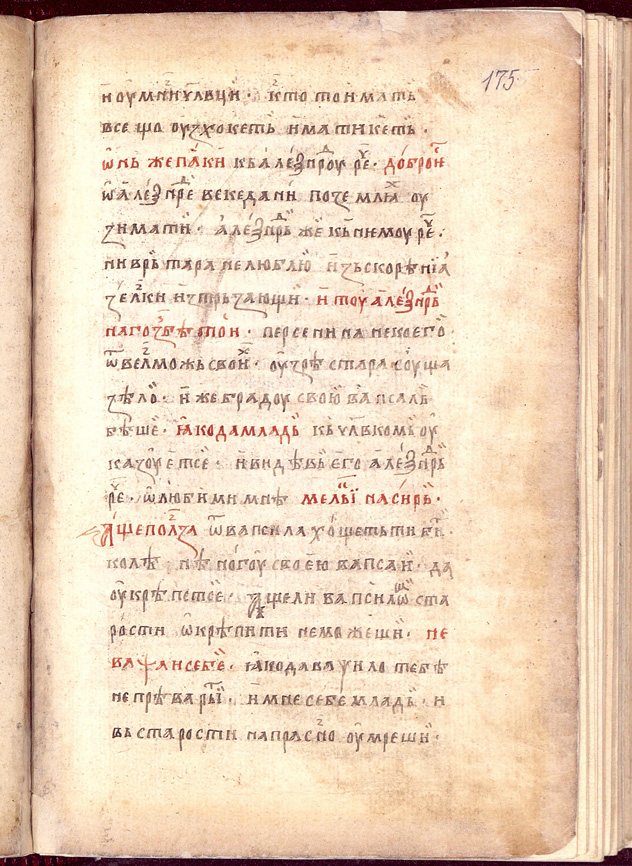 175
и оумнїи чл҃вци · кто то имать
все що оузхокеть имати кеть ·
ѿнь же пакїи къ алеѯндроу рече · доброи
ѡ алеѯндре векедани по земли оу
зимати · алеѯндрь же къ немоу рече ·
ни врьтара не люблю изь скорѣнїа
зелки изтрьзающи · и тоу алеѯндрь
на гозбѣ стои · персенина некоего
ѿ велможь своих · оузрѣ стара соуща
зѣло · иже брадоу свою вапсаль
бѣше · ꙗко да младь кь чл҃вкомь оу
казоуетсе · и видѣвь его алеѯндрь
рече · ѡ любими мнѣ мельїи насирь ·
Аще полза ѿ вапсила хощеть ти би
колѣ нѣ ногоу своею вапсаи · да
оукрѣпетсе · аще ли вапсилѡ ста
рости ѡкрѣпити не можеши · не
вапсаи себе · ꙗко да вачило тебѣ
не прѣвариї · и мне себе младь · и
вь старости напрасно оумреши ·